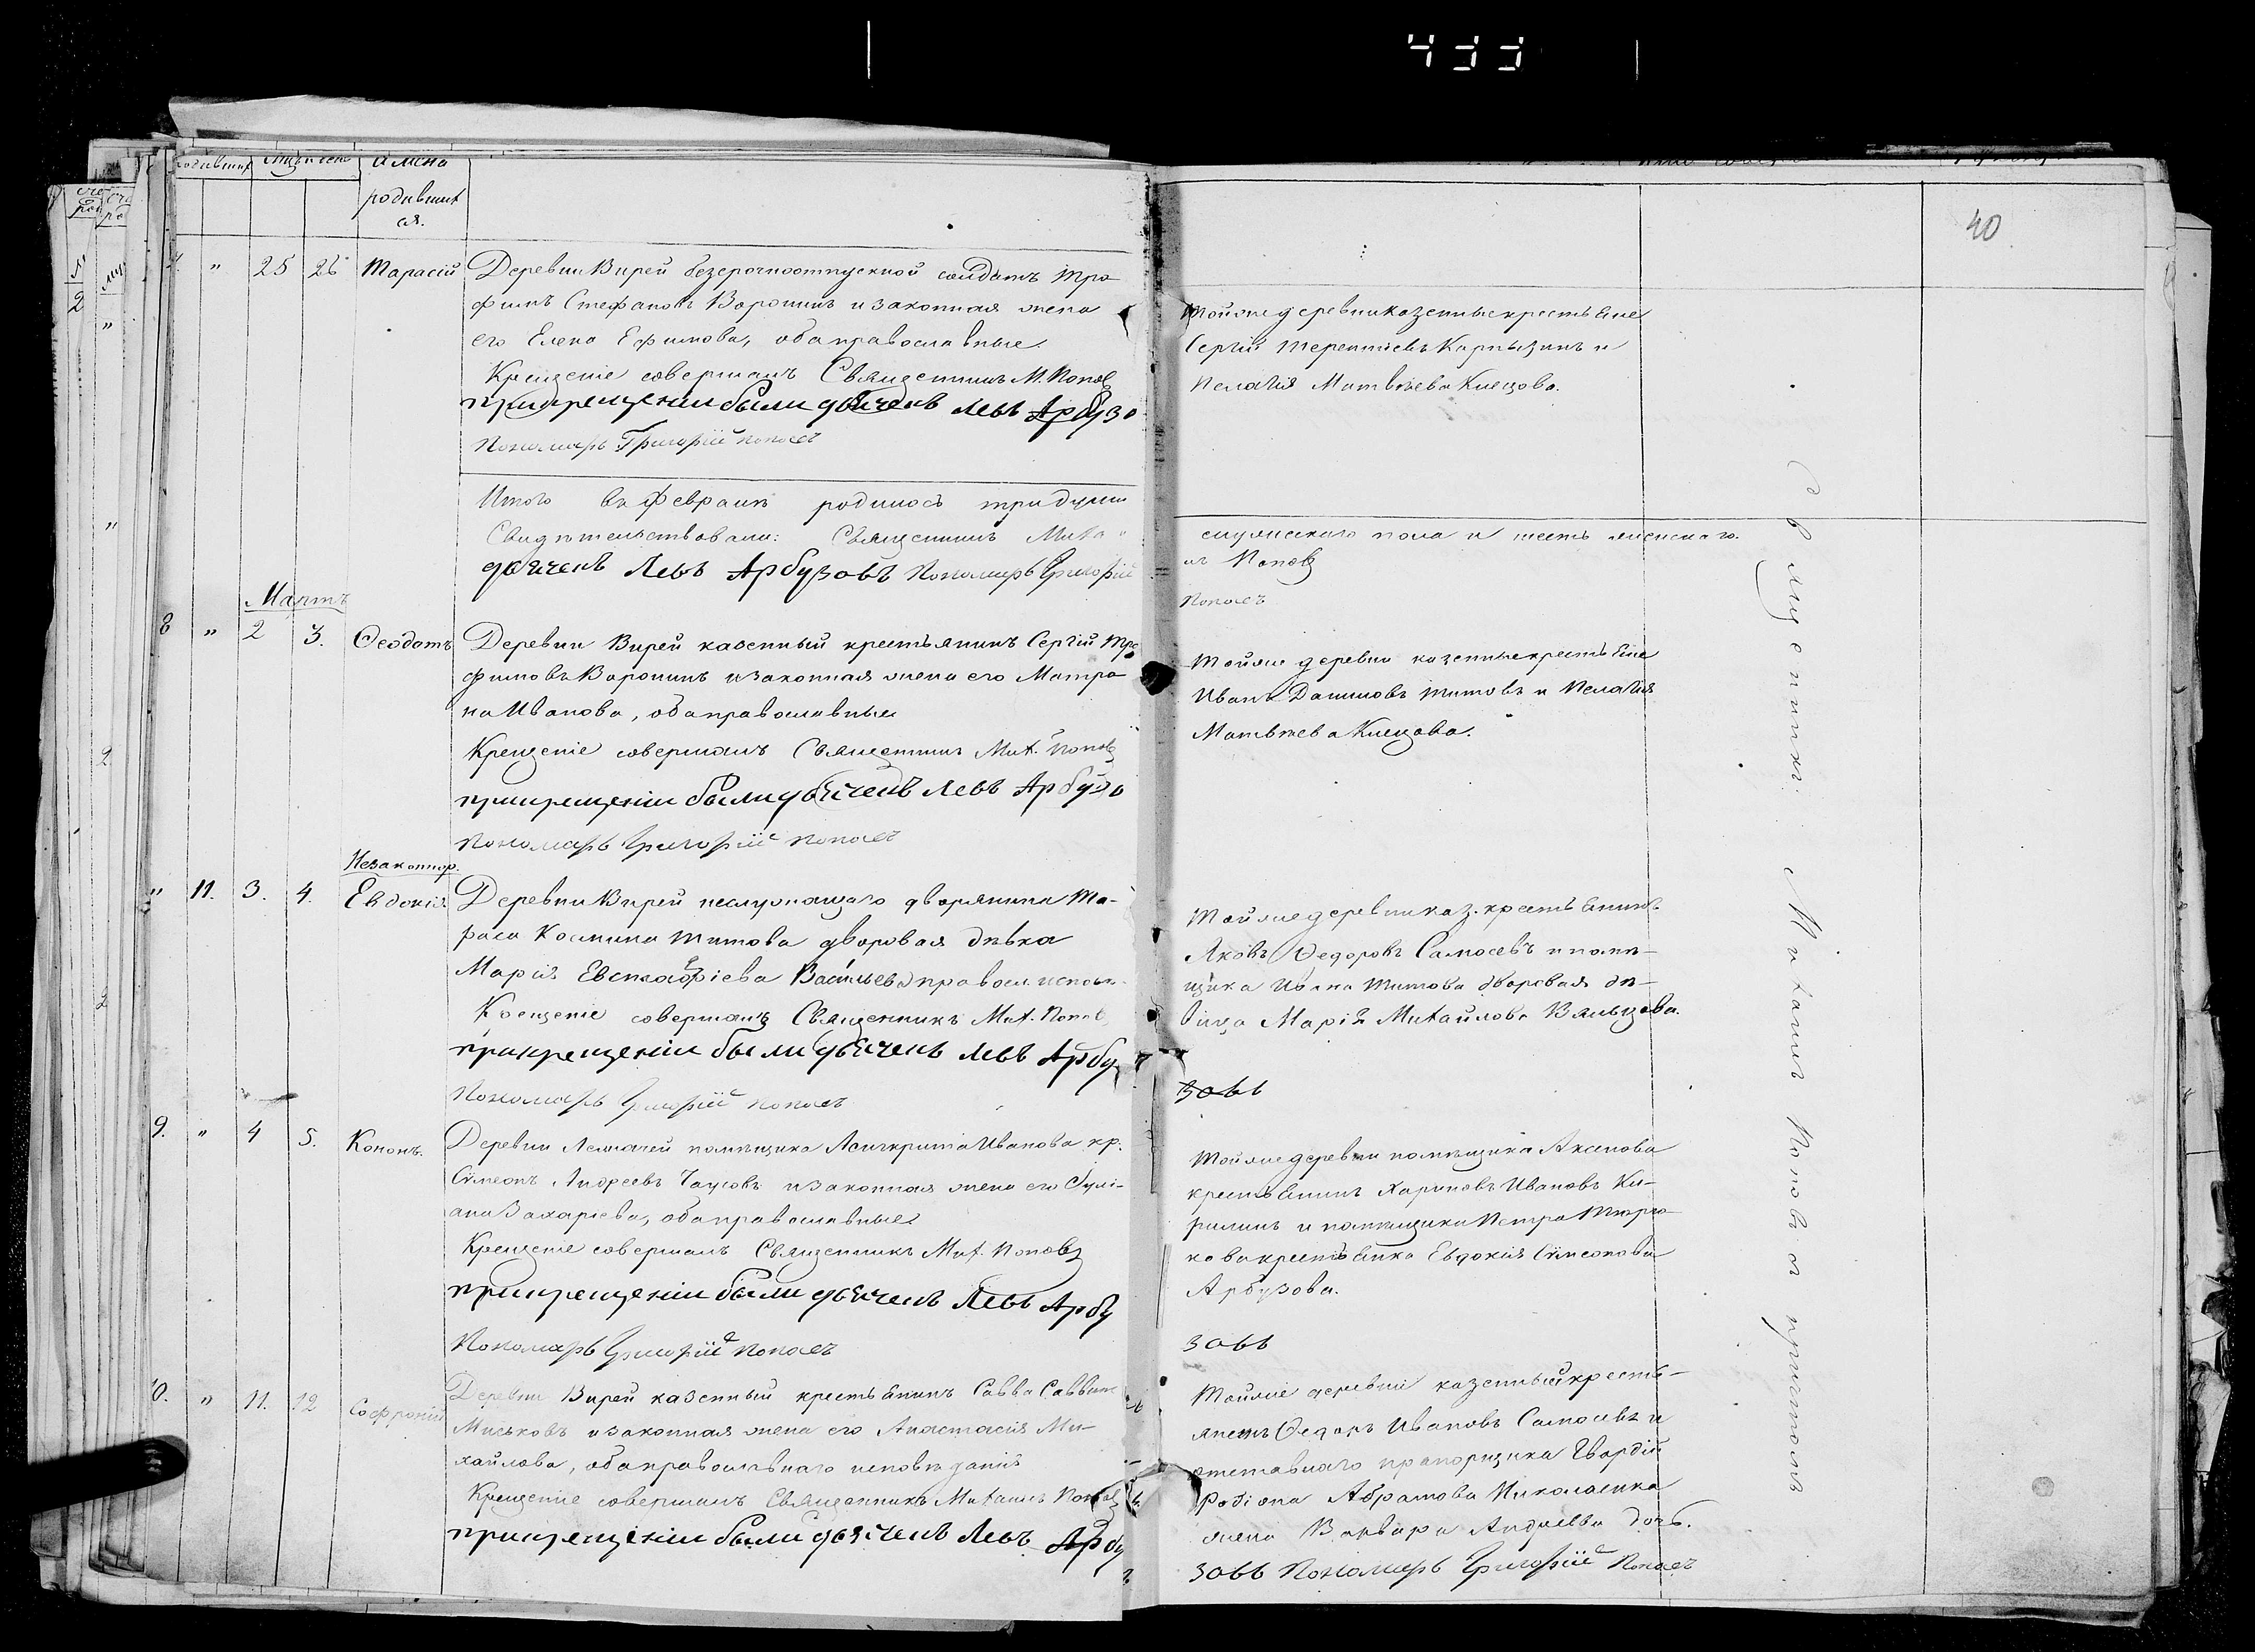 433
40
имена
родивших
ся.
" 25 26 Тарасій Деревни Вирей безсрочноотпускной солдатъ Тро
фимъ Стефановъ Воронинъ и законная жена
его Елена Ефимова, оба православные.
Крещеніе совершалъ Священникъ М. Попов
при крещеніи были дьячекъ Левъ Арбузо
Пономарь Григорій Попов
Тойже деревни казенные крестьяне
Сергій Терентьевъ и
Пелагія Матвѣева Клецова.
Итого въ Февралѣ родилось три
Свидѣтельствовали: Священникъ Миха
дьячекъ Левъ Арбузовъ Пономарь Григорій
скаго пола и шесть женскаго.
лъ Попов
Попов
Мартъ
8 " 2 3. Феодотъ Деревни Вирей казенный крестьянинъ Сергій Тро
фимовъ Воронинъ и законная жена его Матро
на Иванова, оба православные
Крещеніе совершалъ Священникъ Мих. Попов
при крещеніи были дьячекъ Левъ Арбузо
Пономарь Григорій Попов
Тойже деревни казенные крестьяне
Иванъ Даниловъ Титовъ и Пелагія
Матвѣева Клецова.
Незаконнор.
" 11. 3. 4. Евдокія. Деревни Вирей неслужащаго дворянина Та-
раса Космина Титова дворовая дѣвка
Марія Евстафіева Васильева правосл. исповѣ.
Крещеніе совершалъ Священникъ Мих. Попов
при крещеніи были дьячекъ Левъ Арбу
Пономарь Григорій Попов
Тойже деревни каз. крестьянинъ
Яковъ Ѳедоровъ Самосевъ и помѣ-
щика Ивана Титова дворовая дѣ-
вица Марія Михайлова Вяльцова.
зовъ
9. " 4 5. Кононъ. Деревни помѣщика Асинкрита Иванова кр.
Сѵмеонъ Андреевъ и законная жена его Іулі-
ана Захаріева, оба православные
Крещеніе совершалъ Священникъ Мих. Попов
при крещеніи были дьячекъ Левъ Арбу
Пономарь Григорій Попов
Тойже деревни помѣщика Аксенова
крестьянинъ Иванов Ки-
рилинъ и помѣщика Петра
кова крестьянка Евдокія Сѵмеонова
Арбузова.
зовъ
10. " 11. 12 Софроній Деревни Вирей казенный крестьянинъ Савва Саввин
Миньковъ и законная жена его Анастасія Ми-
хайлова, оба православнаго исповѣданія
Крещеніе совершалъ Священникъ Михаилъ Попов
при крещеніи были дьячекъ Левъ Арбу
Тойже деревни казенный кресть-
янинъ Ѳедоръ Ивановъ Самосевъ и
отставнаго прапорщика Гвардіи
Родіона Абрамова Николаенка
жена Варвара Андреева дочь.
зовъ Пономарь Григорій Попов
Священникъ Михаилъ Поповъ съ причтомъ